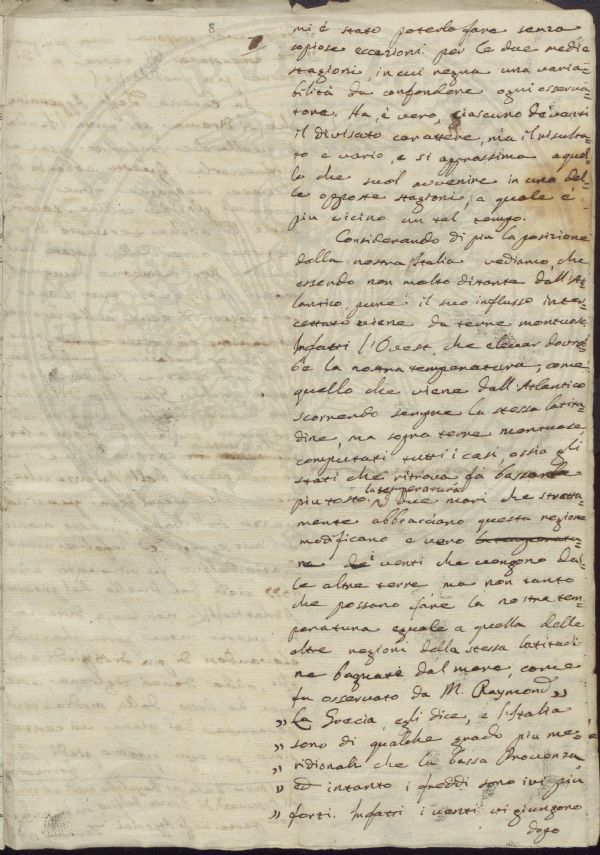 8
mi è stato poterlo fare senza
copiose eccezioni per le due medie
stagioni, in cui regna una varia=
bilità da confondere ogni osserva=
tore. Ha, è vero, ciascuno de' venti
il divisato carattere, ma il risulta=
to è vario, e si approssima a quel=
lo che suol avvenire in una del=
le opposte stagioni, a quale è
più vicino un tal tempo.
Considerando di più la posizione
della nostra Italia vediamo, che
essendo non molto distante dall'At=
lantico pure il suo influsso inter=
cettato viene da terre montuose.
Infatti l'Ovest che elevar dovreb=
be la nostra temperatura, come
quello che viene dall'Atlantico
scorrendo sempre la stessa latitu=
dine, ma sopra terre montuose,
computati tutti i casi, ossia gli
stati che ritrova fà bassa
piutosto la temperatura. due mari che stretta=
mente abbracciano questa regione
modificano è vero la temperatu=
ra de' i venti che vengono dal=
le altre terre ma non tanto
che possano fare la nostra tem=
peratura eguale a quella delle
altre regioni della stessa latitudi=
ne bagnate dal mare, come
fu osservato da M. Raymond „
„ La Grecia, egli dice, e l'Italia
„ sono di qualche grado più me=
„ ridionali che la bassa Provenza,
„ ed intanto i freddi sono ivi più
„ forti. Infatti i venti vi giungono
dopo